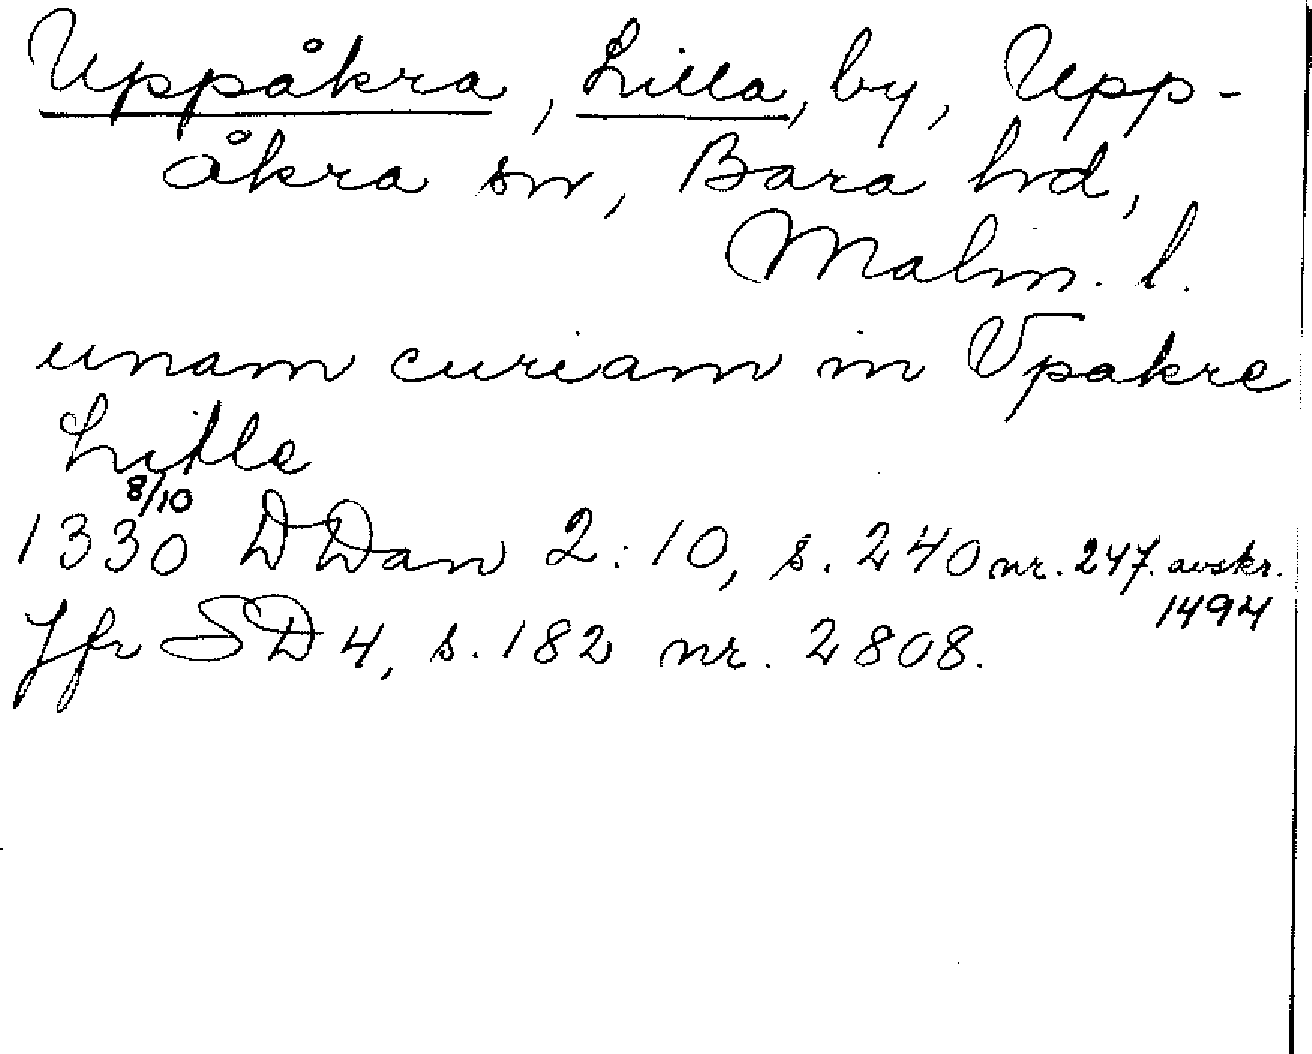 Uppåkra, Lilla, by, Upp-
åkra sn, Bara hd,
Malm. l.
unam curiam in Vpakre
Litle
8/10
1330 DDan 2:10, s. 240 nr. 247. avskr.
1494
Jfr SD 4, s. 182 nr. 2808.